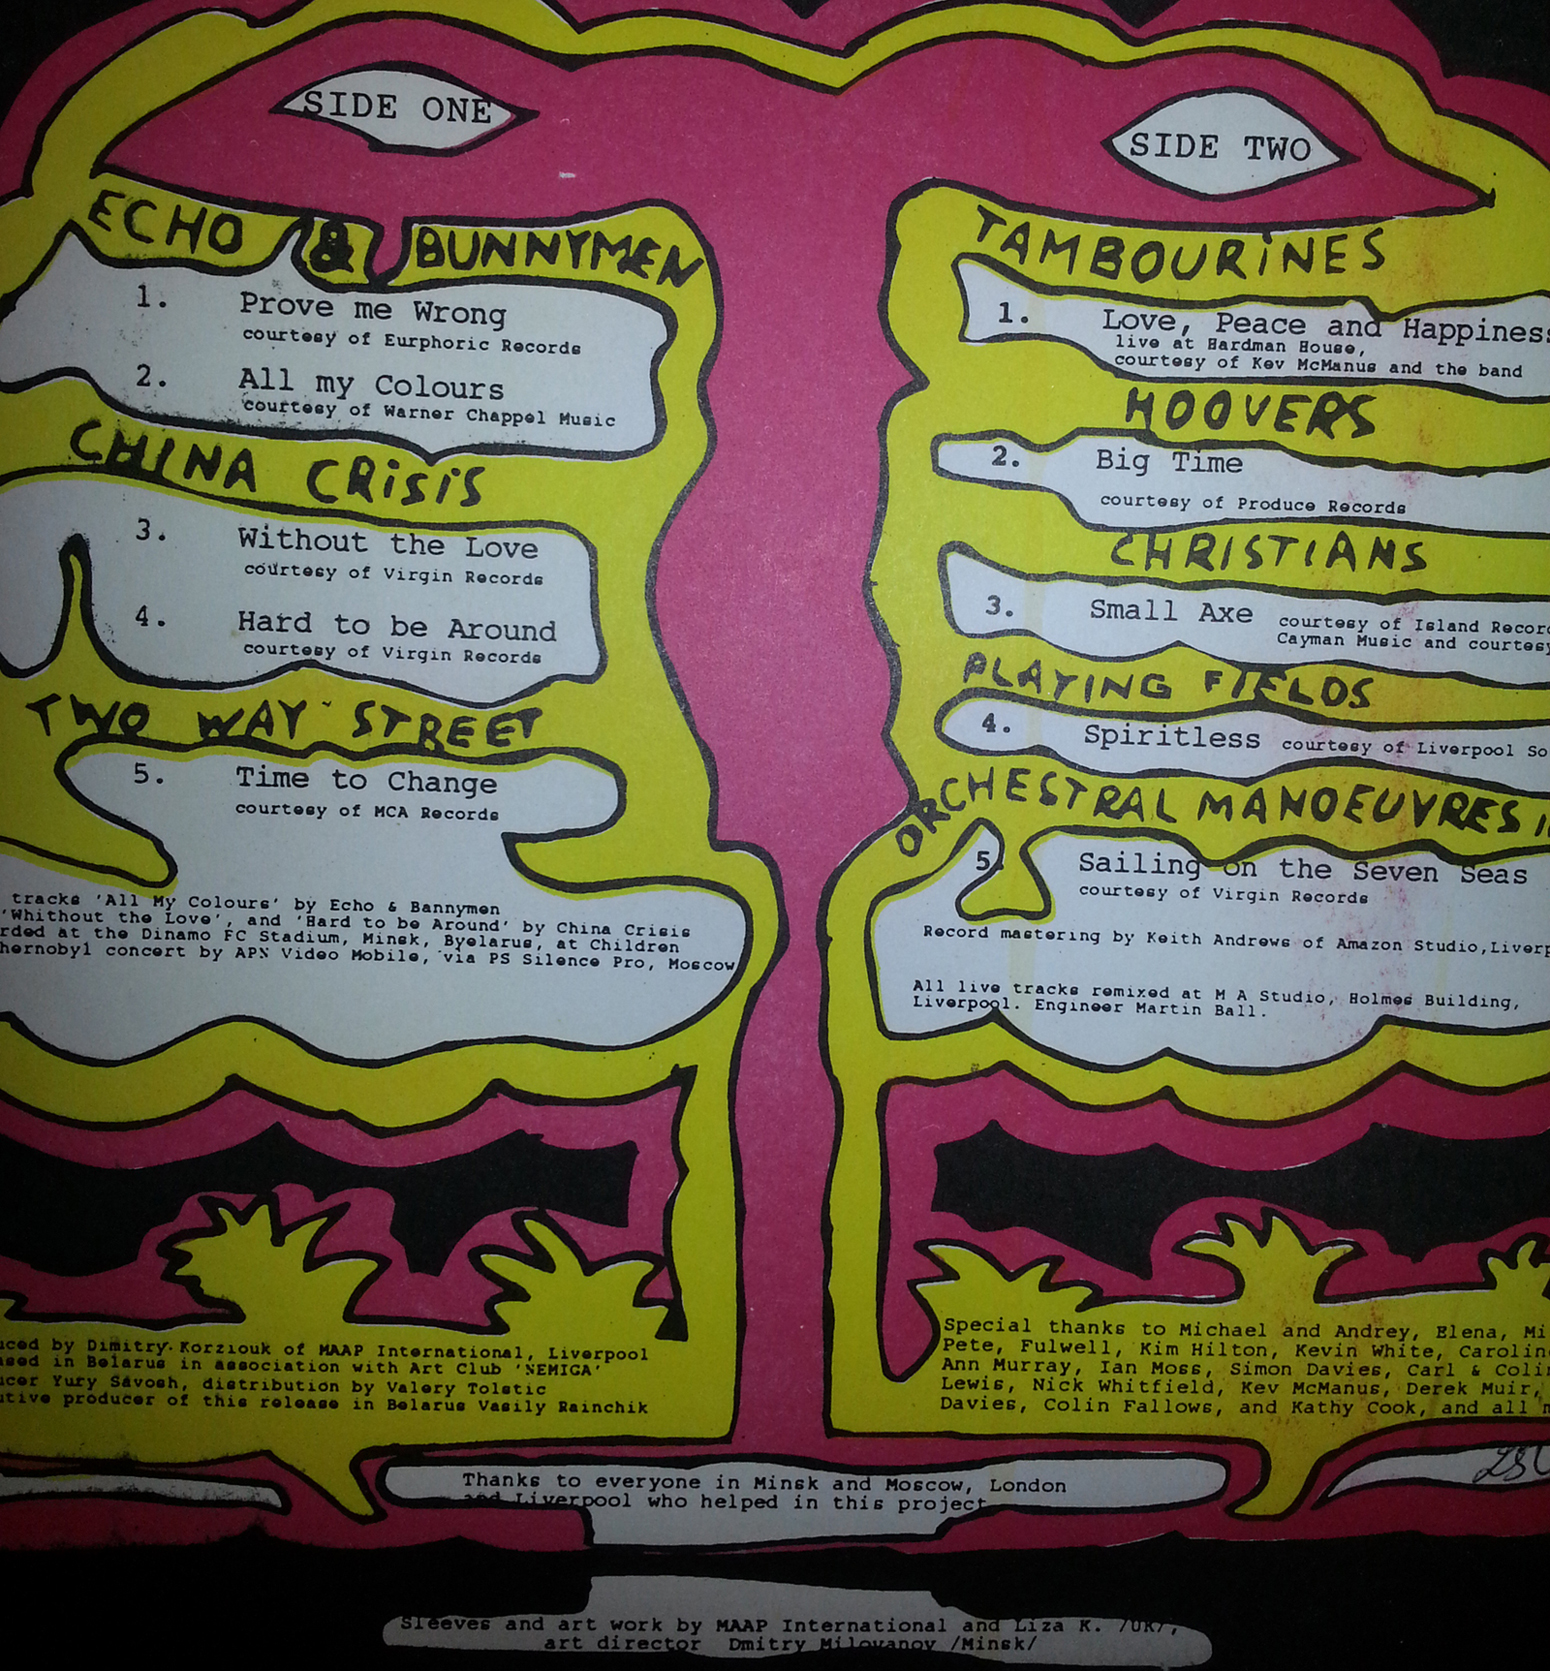 SIDE ONE
ECHO & BUNNYMEN
1. Prove me Wrong
courtesy of Eurphoric Records
2. All my Colours
courtesy of Warner Chappel Music
CHINA CRiSiS
3. Without the Love
courtesy of Virgin Records
4. Hard to be Around
courtesy of Virgin Records
TWO WAY STREET
5. Time to Change
courtesy of MCA Records
tracks 'All My Colours' by Echo & Bannymen
'Whithout the Love', and 'Hard to be Around' by China Crisis
rded at the Dinamo FC Stadium, Minsk, Byelarus, at Children
hernobyl concert by APN Video Mobile, via PS Silence Pro, Moscow
SIDE TWO
TAMBOURiNES
1. Love, Peace and Happiness
live at Hardman House,
courtesy of Kev McManus and the band
HOOVERS
2. Big Time
courtesy of Produce Records
CHRISTIANS
3. Small Axe courtesy of Island Recor
Cayman Music and courtesy
PLAYING FIELDS
4. Spiritless courtesy of Liverpool So
ORCHESTRAL MANOEUVRES
5. Sailing on the Seven Seas
courtesy of Virgin Records
Record mastering by Keith Andrews of Amazon Studio, Liverp
All live tracks remixed at M A Studio, Holmes Building,
Liverpool. Engineer Martin Ball.
uced by Dimitry Korziouk of MAAP International, Liverpool
ased in Belarus in association with Art Club 'NEMIGA'
ucer Yury Savosh, distribution by Valery Tolstic
utive producer of this release in Belarus Vasily Rainchik
Special thanks to Michael and Andrey, Elena, Mi
Pete, Fulwell, Kim Hilton, Kevin White, Carolin
Ann Murray, Ian Moss, Simon Davies, Carl & Coli
Lewis, Nick Whitfield, Kev McManus, Derek Muir,
Davies, Colin Fallows, and Kathy Cook, and all m
Thanks to everyone in Minsk and Moscow, London
and Liverpool who helped in this project
Sleeves and art work by MAAP International and Liza K. /UK/,
art director Dmitry Milovanov /Minsk/